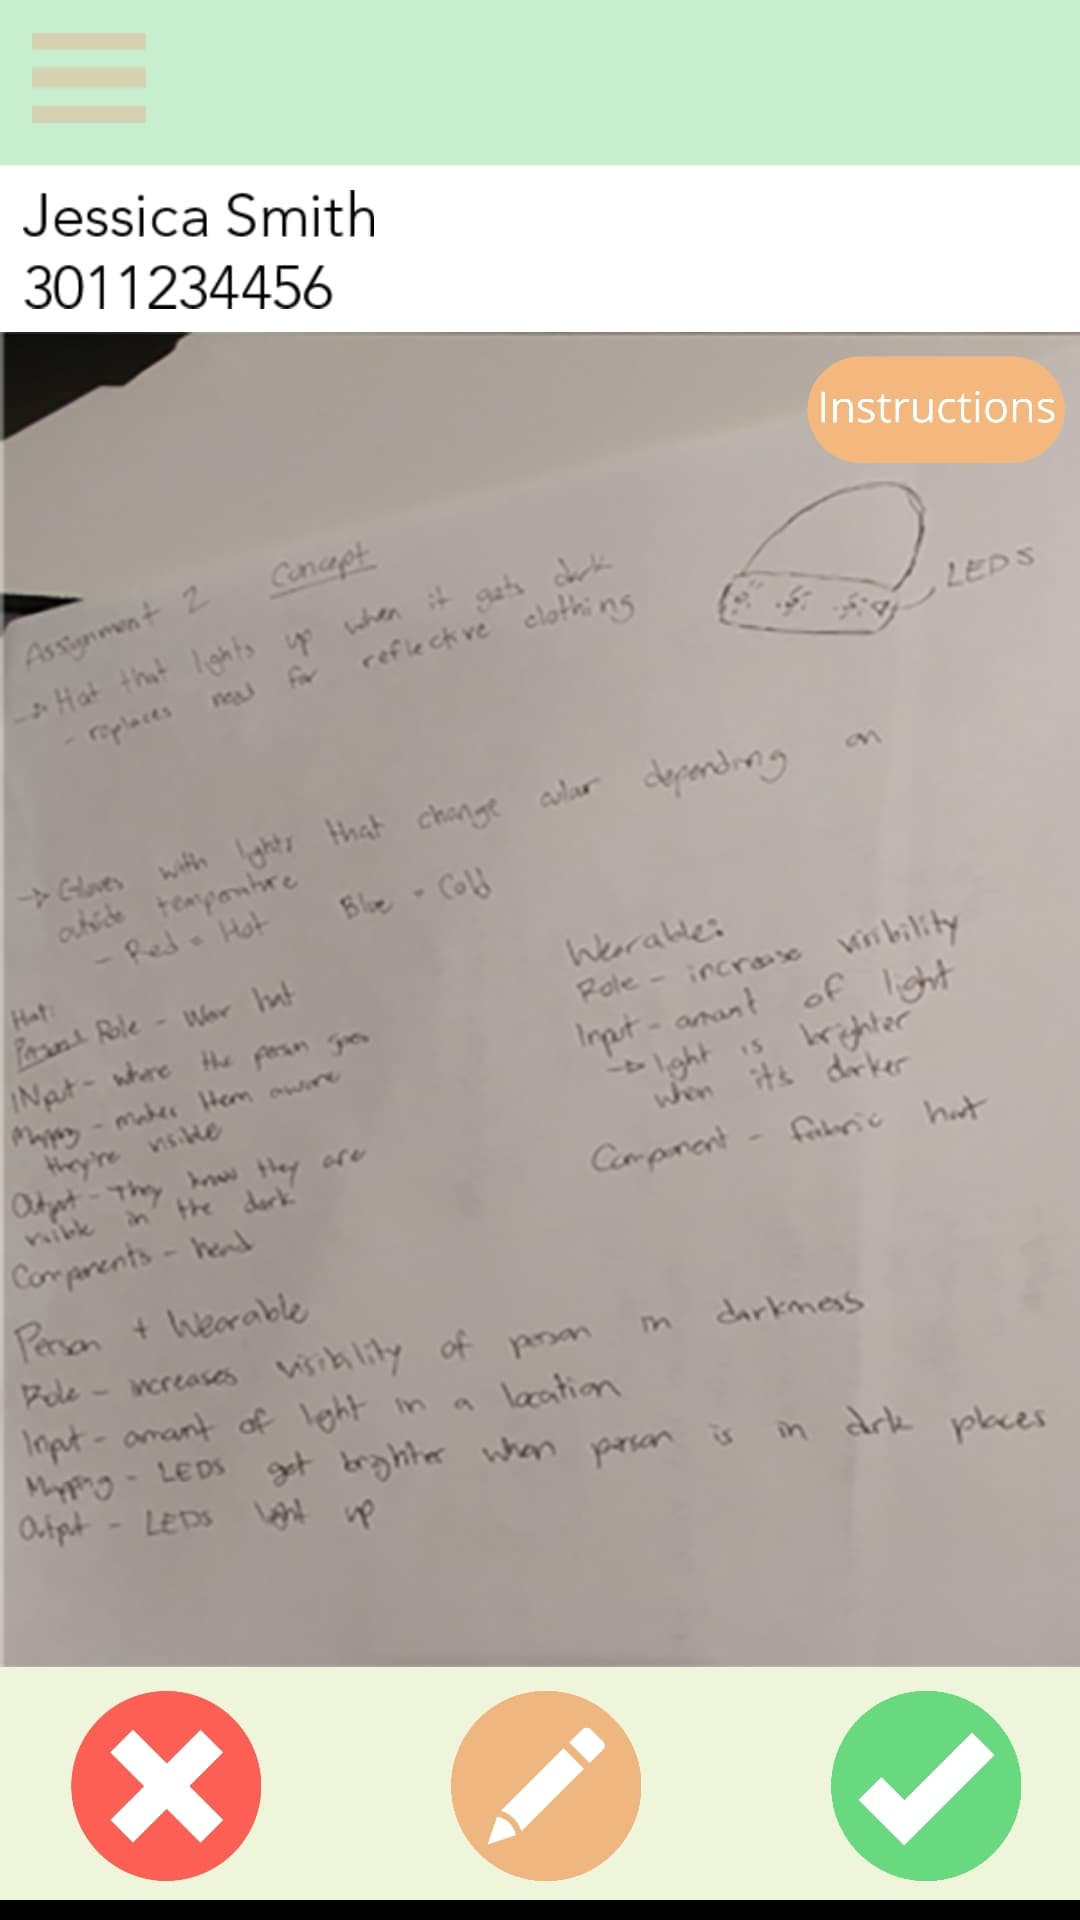 Jessica Smith
3011234456
Instructions
Assignment 2 Concept
→ Hat that lights up when it gets dark
- replaces need for reflective clothing
LEDS
→ Gloves with lights that change colar depending on
outside temperature
- Red = Hot Blue = Cold
Hat:
Role - Wear hat
INput - where the person goes
Mapping - makes them aware
they're visible
Output - They know they are
visible in the dark
Components - head
Wearable:
Role - increase visibility
Input - amant of light
→ light is brighter
when its darker
Component - fabric hat
Person + Wearable
Role - increases visibility of person in darkness
Input - amant of light in a location
Mapping - LEDS get brighter when person is in drk places
Output - LEDS light up